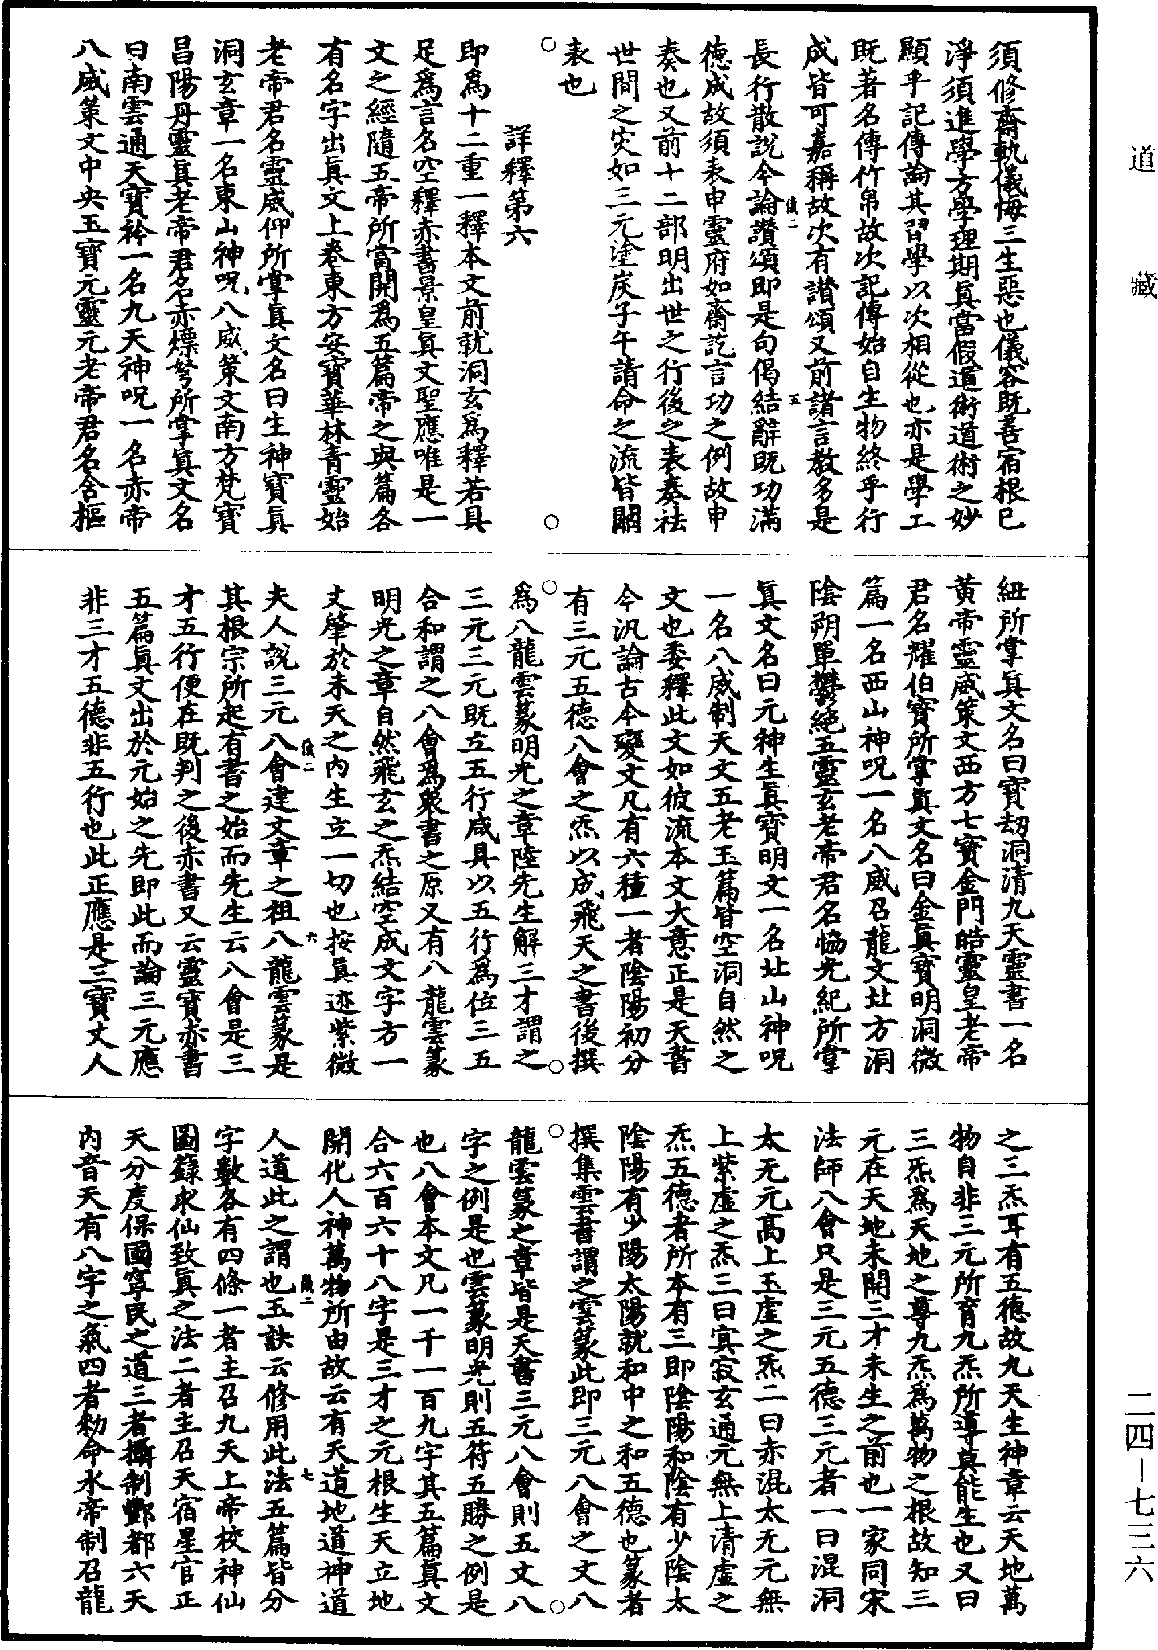 道藏
須修齋軌儀悔三生惡也儀容既善宿根已
淨須進學方學理期眞當假道術道術之妙
顯乎記傳論其習學以次相從也亦是學工
既著名傳竹帛故次記傳始自生物終乎行
成皆可嘉稱故次有讃頌又前諸言教多是
儀一 五
長行散說今論讃頌即是句偈結辭既功滿
德成故須表申靈府如齋訖言功之例故申
奏也又前十二部明出世之行後之表奏祛
世間之灾如三元塗炭子午請命之流皆關
表也
詳釋第六
即爲十二重一釋本文前就洞玄爲釋若具
足爲言名空釋赤書景皇眞文聖應唯是一
文之經隨五帝所當開爲五篇帝之與篇各
有名字出眞文上卷東方安寶華林青靈始
老帝君名靈威仰所掌真文名曰生神寶眞
洞玄章一名東山神呪八威策文南方梵寶
昌陽丹靈眞老帝君名赤熛弩所掌眞文名
曰南雲通天寶衿一名九天神呪一名赤帝
八威策文中央玉寶元靈元老帝君名含樞
紐所掌眞文名曰寶劫洞清九天靈書一名
黃帝靈威策文西方七寶金門皓靈皇老帝
君名耀伯寶所掌眞文名曰金眞寶明洞微
篇一名西山神呪一名八威召龍文北方洞
陰朔單鬱絕五靈玄老帝君名協光紀所掌
眞文名曰元神生眞寶明文一名北山神呪
一名八威制天文五老玉篇皆空洞自然之
文也委釋此文如彼流本文大意正是天書
今汎論古今變文凡有六種一者陰陽初分
有三元五德八會之炁以成飛天之書後撰
爲八龍雲篆明光之章陸先生解三才謂之
三元三元既立五行咸具以五行爲位三五
合和謂之八會爲衆書之原又有八龍雲篆
明光之章自然飛玄之炁結空成文字方一
丈肇於未天之內生立一切也按眞迹紫微
儀二 六
夫人說三元八會建文章之祖八龍雲篆是
其根宗所起有書之始而先生云八會是三
才五行便在既判之後赤書又云靈寶赤書
五篇眞文出於元始之先即此而論三元應
非三才五德非五行也此正應是三寶丈人
之三炁耳有五德故九天生神章云天地萬
物自非三元所育九炁所導莫能生也又曰
三炁爲天地之尊九炁爲萬物之根故知三
元在天地未開三才未生之前也一家同宋
法師八會只是三元五德三元者一曰混洞
太无元高上玉虛之炁二曰赤混太无元無
上紫虛之炁三曰寘寂玄通元無上清虛之
炁五德者所本有三即陰陽和陰有少陰太
陰陽有少陽太陽就和中之和五德也篆者
撰集雲書謂之雲篆此即三元八會之文八
龍雲篆之章皆是天書三元八會則五文八
字之例是也雲篆明光則五符五勝之例是
也八會本文凡一千一百九字其五篇眞文
合六百六十八字是三才之元根生天立地
開化人神萬物所由故云有天道地道神道
儀二 七
人道此之謂也玉訣云修用此法五篇皆分
字數各有四條一者主召九天上帝校神仙
圖籙求仙致眞之法二者主召天宿星官正
天分度保國寧民之道三者攝制酆都六天
內音天有八字之氣四者勑命水帝制召龍
二四—七三六